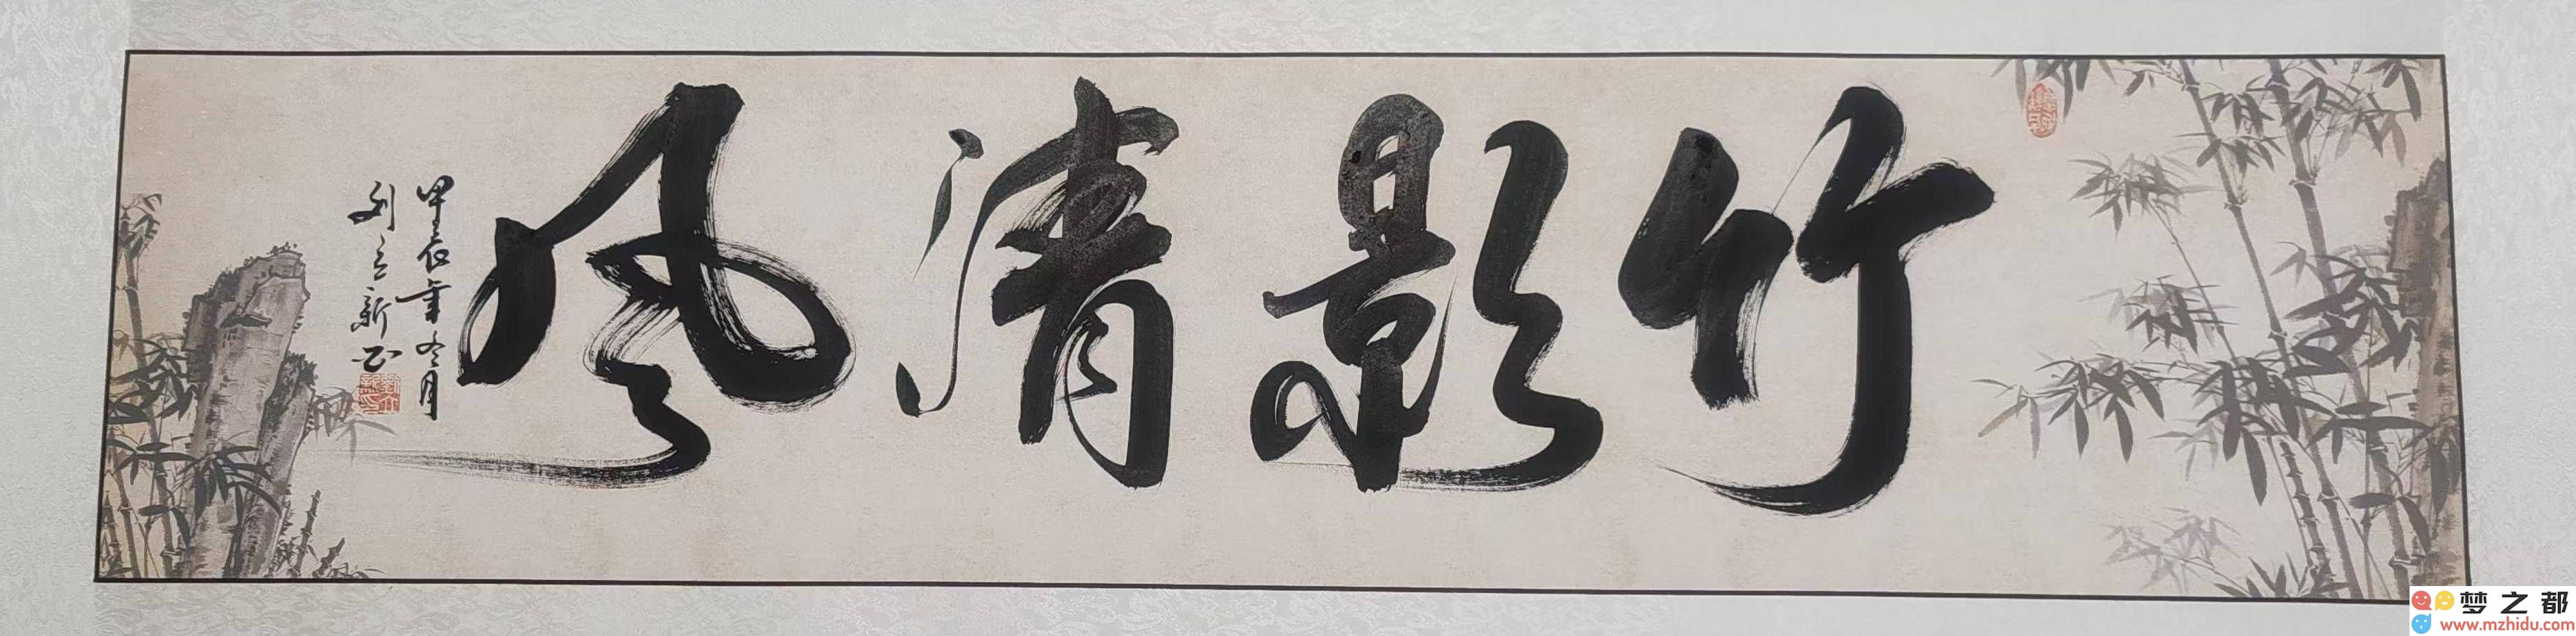 竹影清风
甲辰年冬月
刘立新书
梦之都
www.mzhidu.com